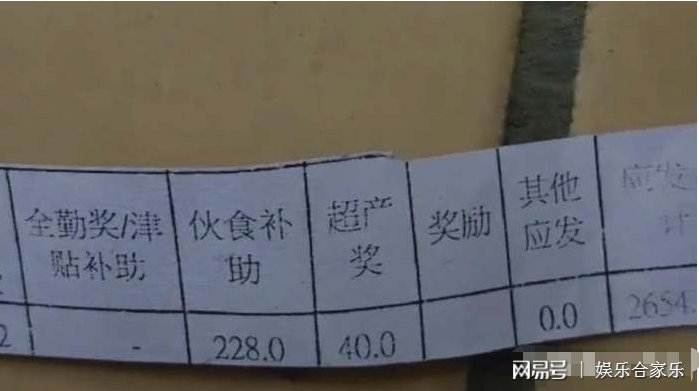 全勤奖/津
贴补助
伙食补
助
超产
奖
奖励
其他
应发
应发
计
2
-
228.0
40.0
0.0
2654.
网易号 | 娱乐合家乐